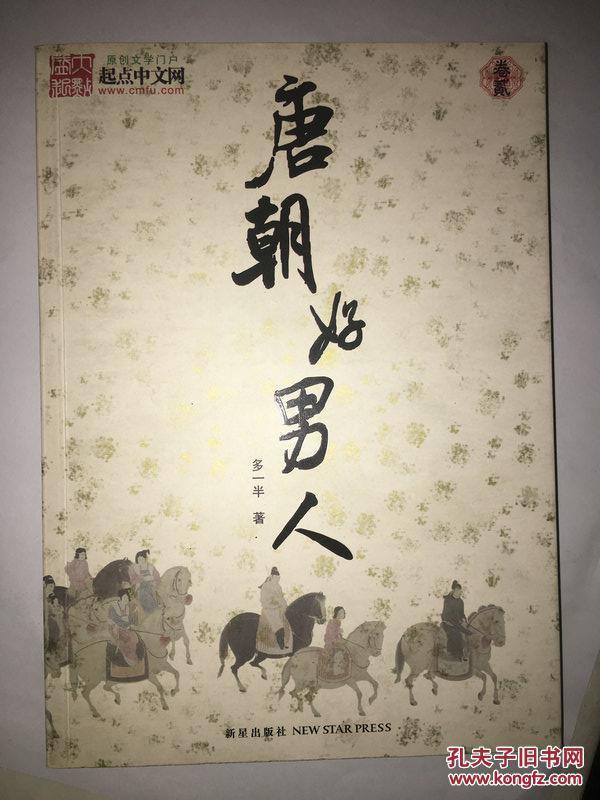 原创文学门户
起点中文网
www.cmfu.com
卷贰
唐朝好男人
多一半 著
新星出版社 NEW STAR PRESS
孔夫子旧书网
www.kongfz.com